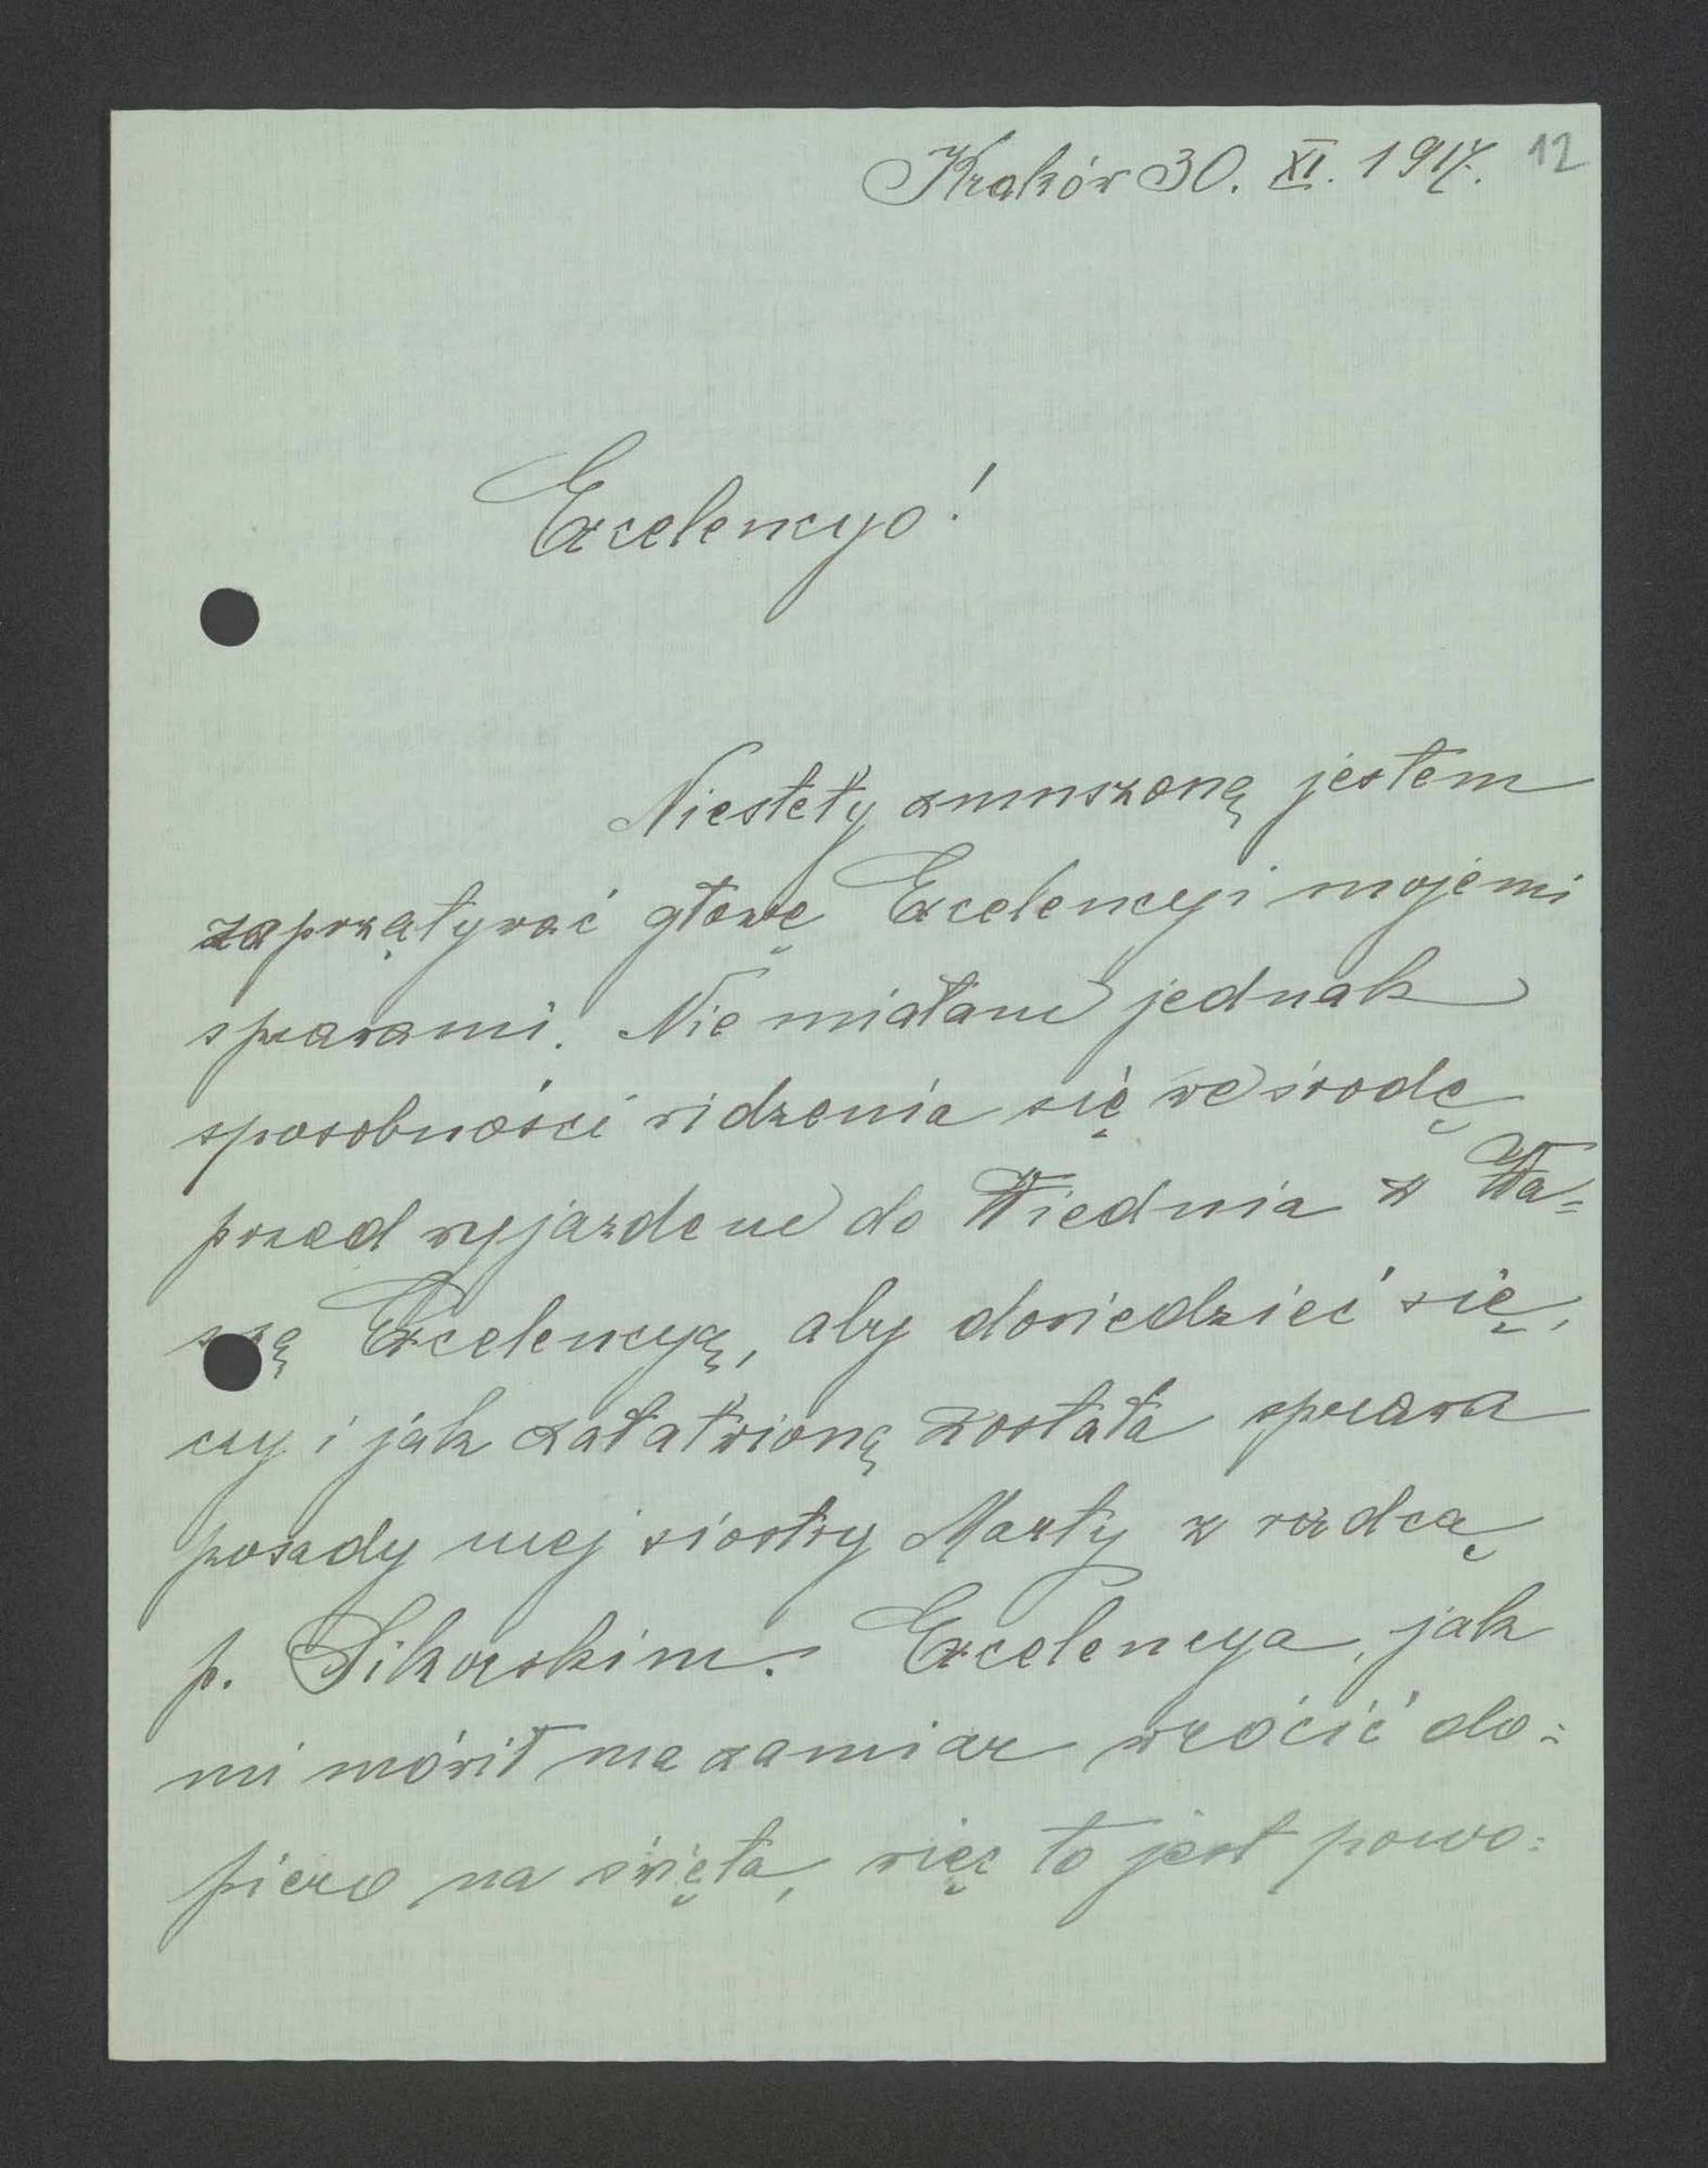 Kraków 30. XI. 1917. 12
Excelencyo!
Niestety zmuszoną jestem
zaprzątywać głowę Excelencyi mojemi
sprawami. Nie miałam jednak
sposobności widzenia się we środę
przed wyjazdem do Wiednia z Wa=
szą Excelencyą, aby dowiedzieć się,
czy i jak załatwioną została sprawa
posady mej siostry Marty z radcą
p. Sikorskim. Excelencya, jak
mi mówił ma zamiar wrócić do=
piero na święta, więc to jest powo=